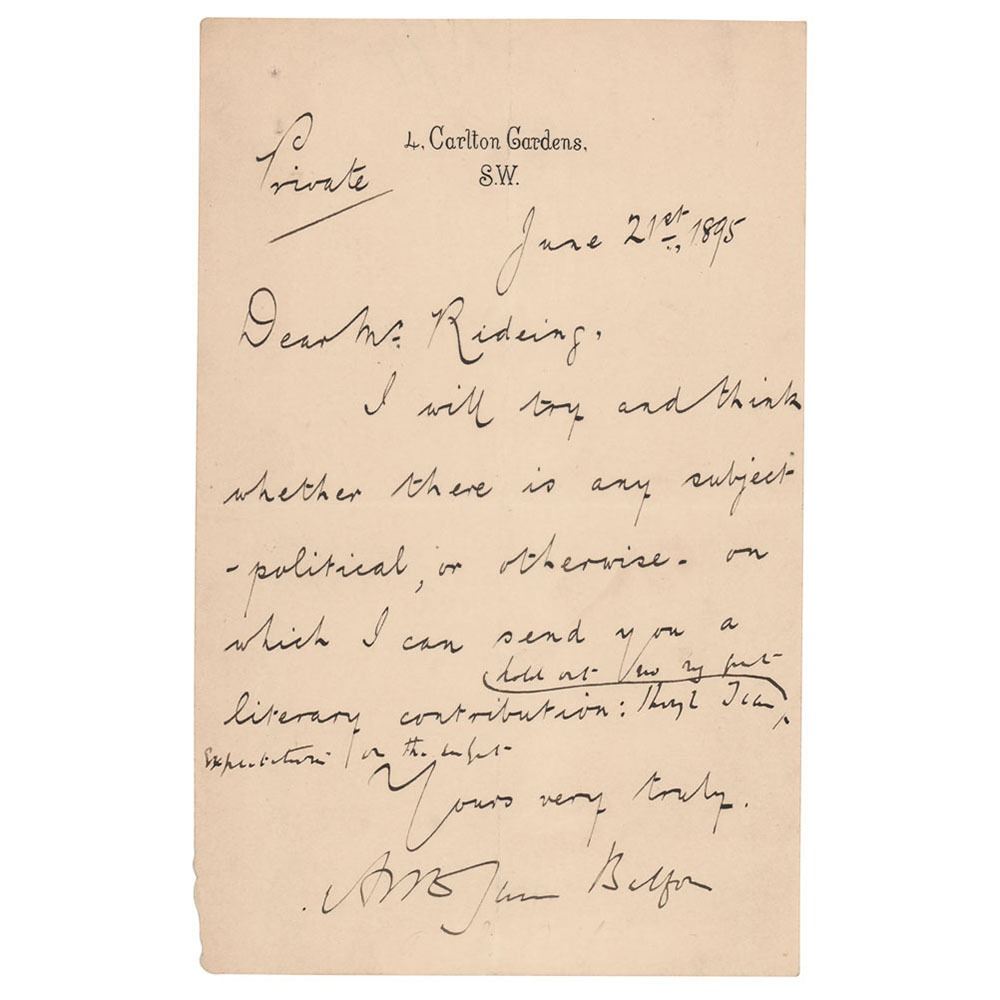 Private
4, Carlton Gardens,
S.W.
June 21st, 1895
Dear Mr. Rideing,
I will try and think
whether there is any subject
- political, or otherwise - on
which I can send you a
hold out no great
literary contribution: though I can
expectations on the subject
Yours very truly.
Arthur James Balfour